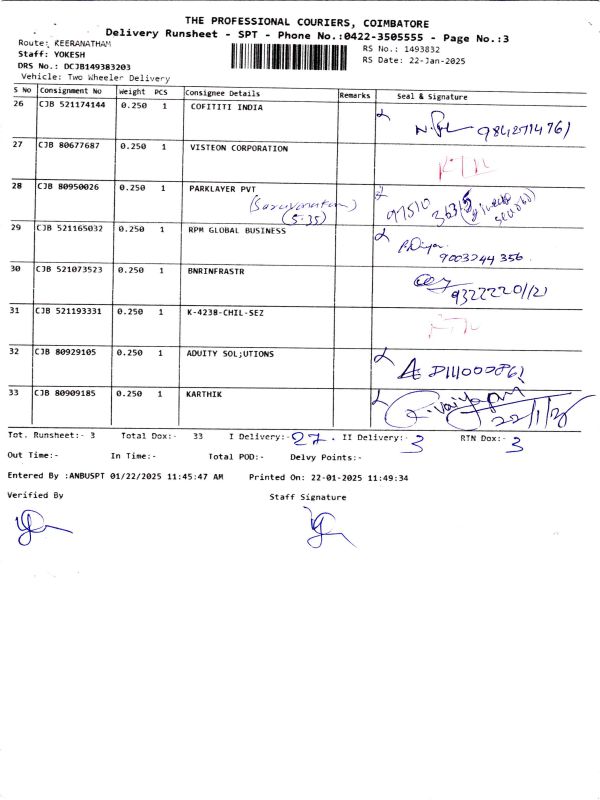 THE PROFESSIONAL COURIERS, COIMBATORE
Delivery Runsheet - SPT - Phone No.:0422-3505555 - Page No.:3
Route: KEERANATHAM
RS No.: 1493832
Staff: YOKESH
RS Date: 22-Jan-2025
DRS No.: DCJB149383203
Vehicle: Two Wheeler Delivery
S No Consignment No Weight PCS Consignee Details Remarks Seal & Signature
26 CJB 521174144 0.250 1 COFITITI INDIA
27 CJB 80677687 0.250 1 VISTEON CORPORATION RTN
28 CJB 80950026 0.250 1 PARKLAYER PVT 97510
(Saravanatam)
(S-35)
29 CJB 521165032 0.250 1 RPM GLOBAL BUSINESS
9003244356
30 CJB 521073523 0.250 1 BNRINFRASTR
31 CJB 521193331 0.250 1 K-4238-CHIL-SEZ RTN
32 CJB 80929105 0.250 1 ADUITY SOL;UTIONS
33 CJB 80909185 0.250 1 KARTHIK
22/1/25
Tot. Runsheet:- 3 Total Dox:- 33 I Delivery:- 27. II Delivery:- 3 RTN Dox:- 3
Out Time:- In Time:- Total POD:- Delvy Points:-
Entered By :ANBUSPT 01/22/2025 11:45:47 AM Printed On: 22-01-2025 11:49:34
Verified By Staff Signature